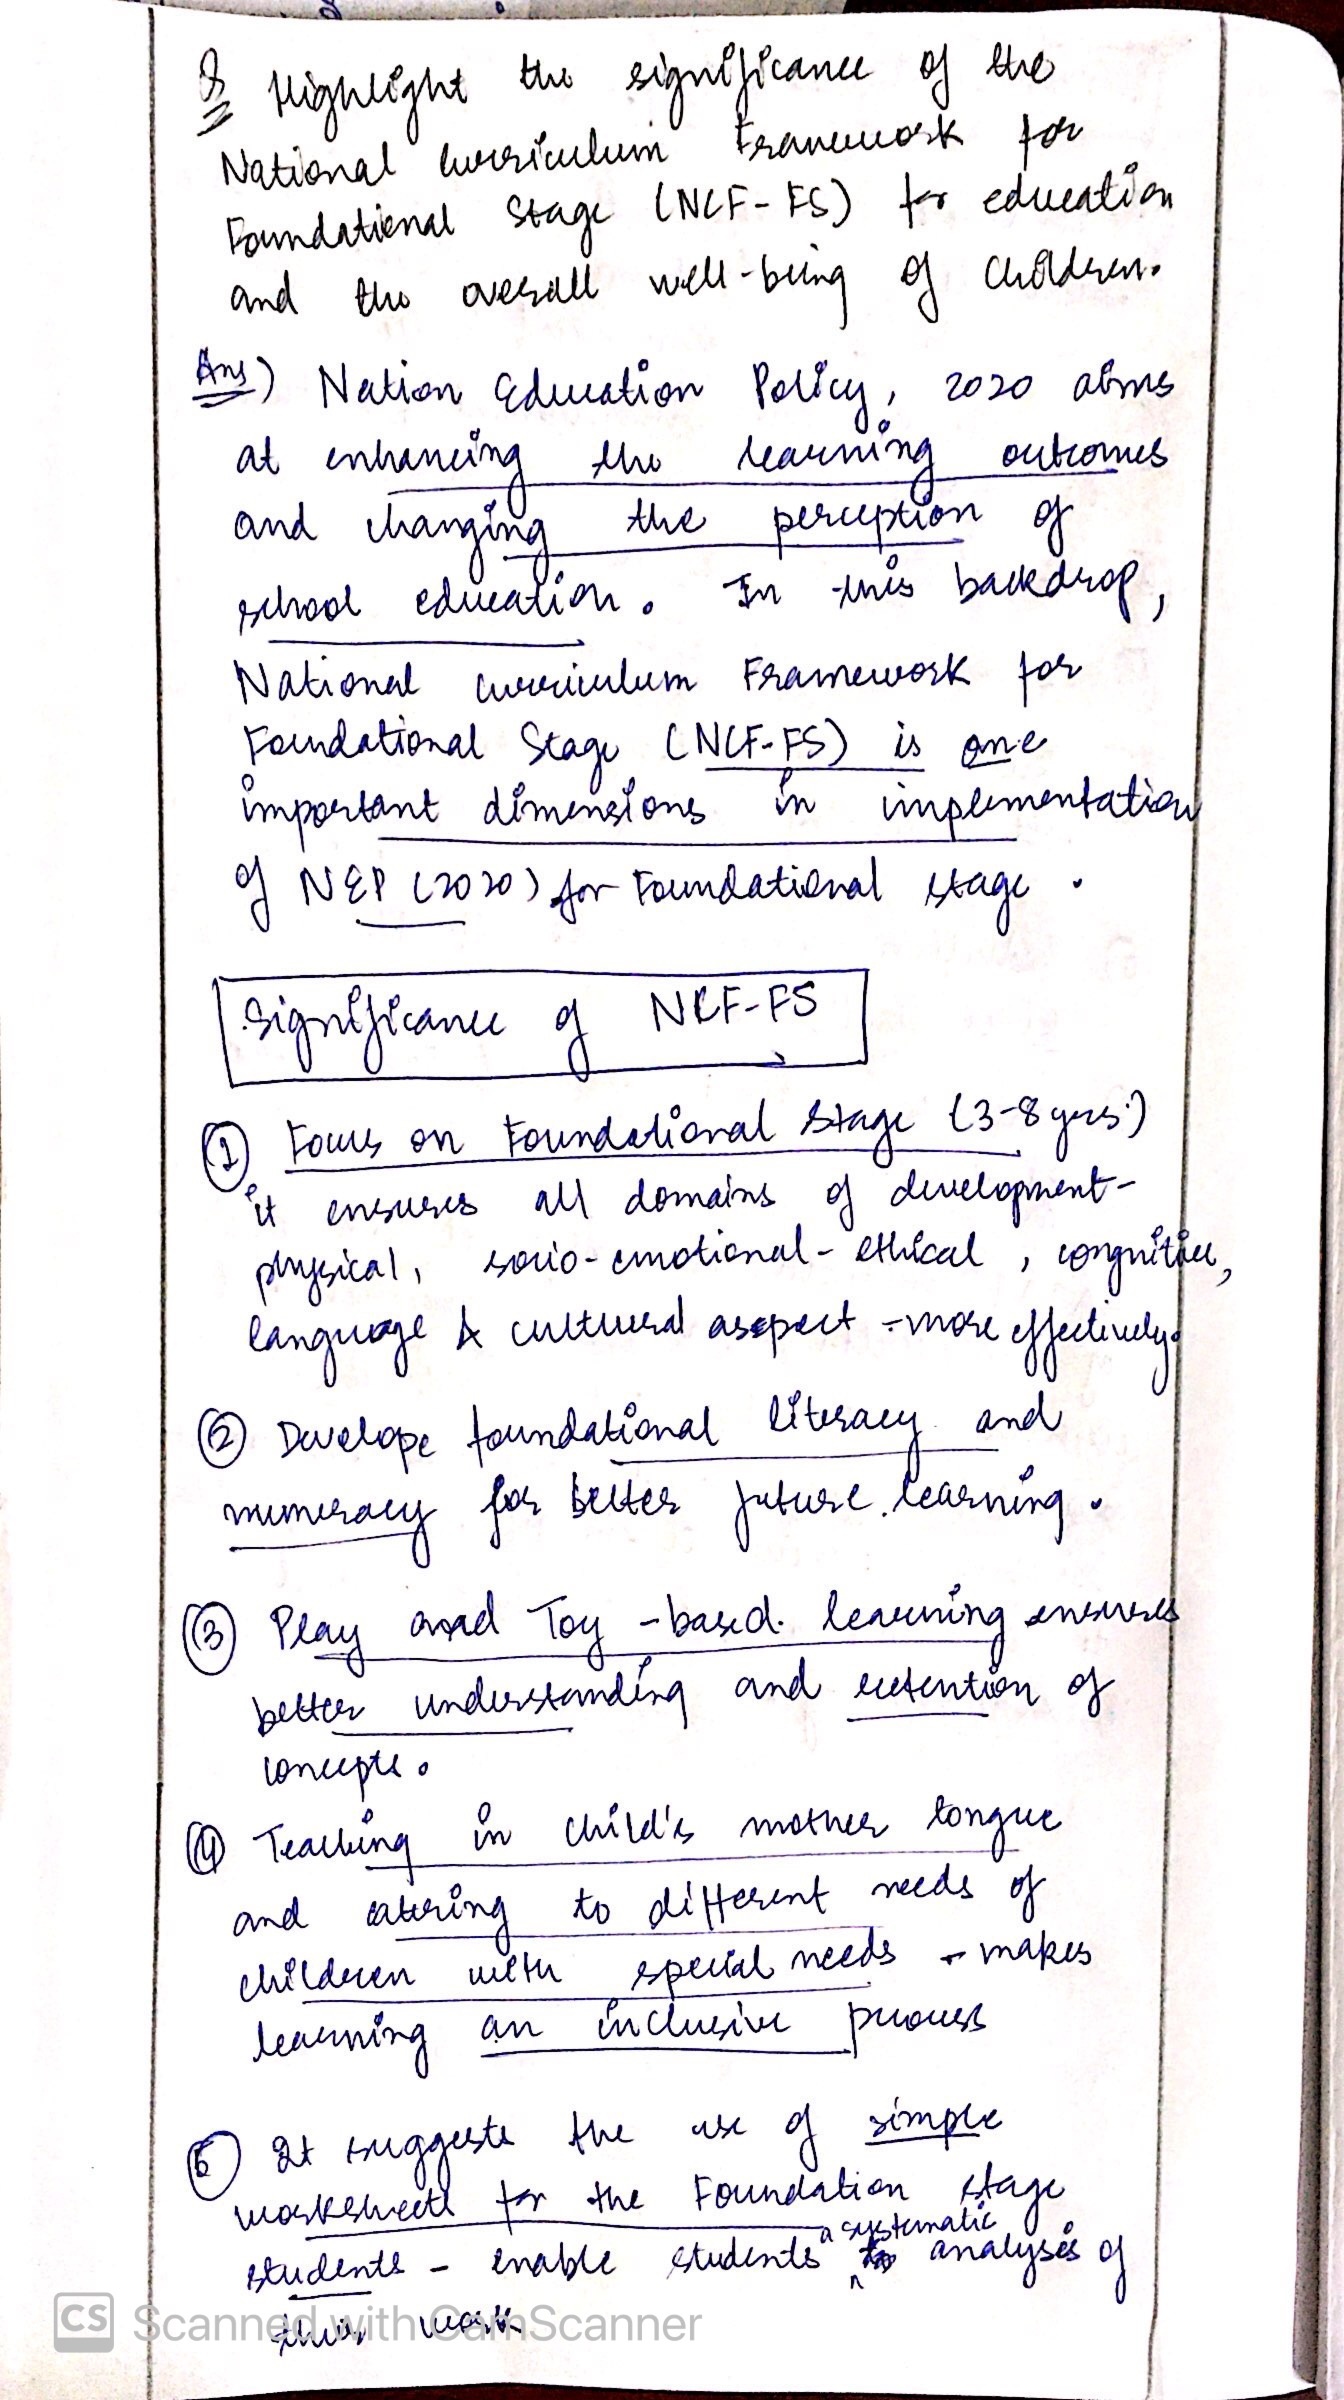 Q Highlight the significance of the
National Curriculum Framework for
Foundational Stage (NCF-FS) for education
and the overall well-being of children.
Ans) Nation Education Policy, 2020 aims
at enhancing the learning outcomes
and changing the perception of
school education. In this backdrop,
National Curriculum Framework for
Foundational Stage (NCF-FS) is one
important dimensions in implementation
of NEP (2020) for Foundational stage.
Significance of NCF-FS
① Focus on Foundational Stage (3-8 yrs.)
it ensures all domains of development-
physical, socio-emotional-ethical, congnitive,
language & cultural asspect - more effectively.
② Develope foundational literacy and
numeracy for better future learning.
③ Play and Toy-based learning ensures
better understanding and retention of
concepts.
④ Teaching in child's mother tongue
and catering to different needs of
children with special needs - makes
learning an inclusive process
⑤ It suggests the use of simple
worksheets for the Foundation stage
students - enable students a systematic analysis of
their work
CS Scanned with CamScanner